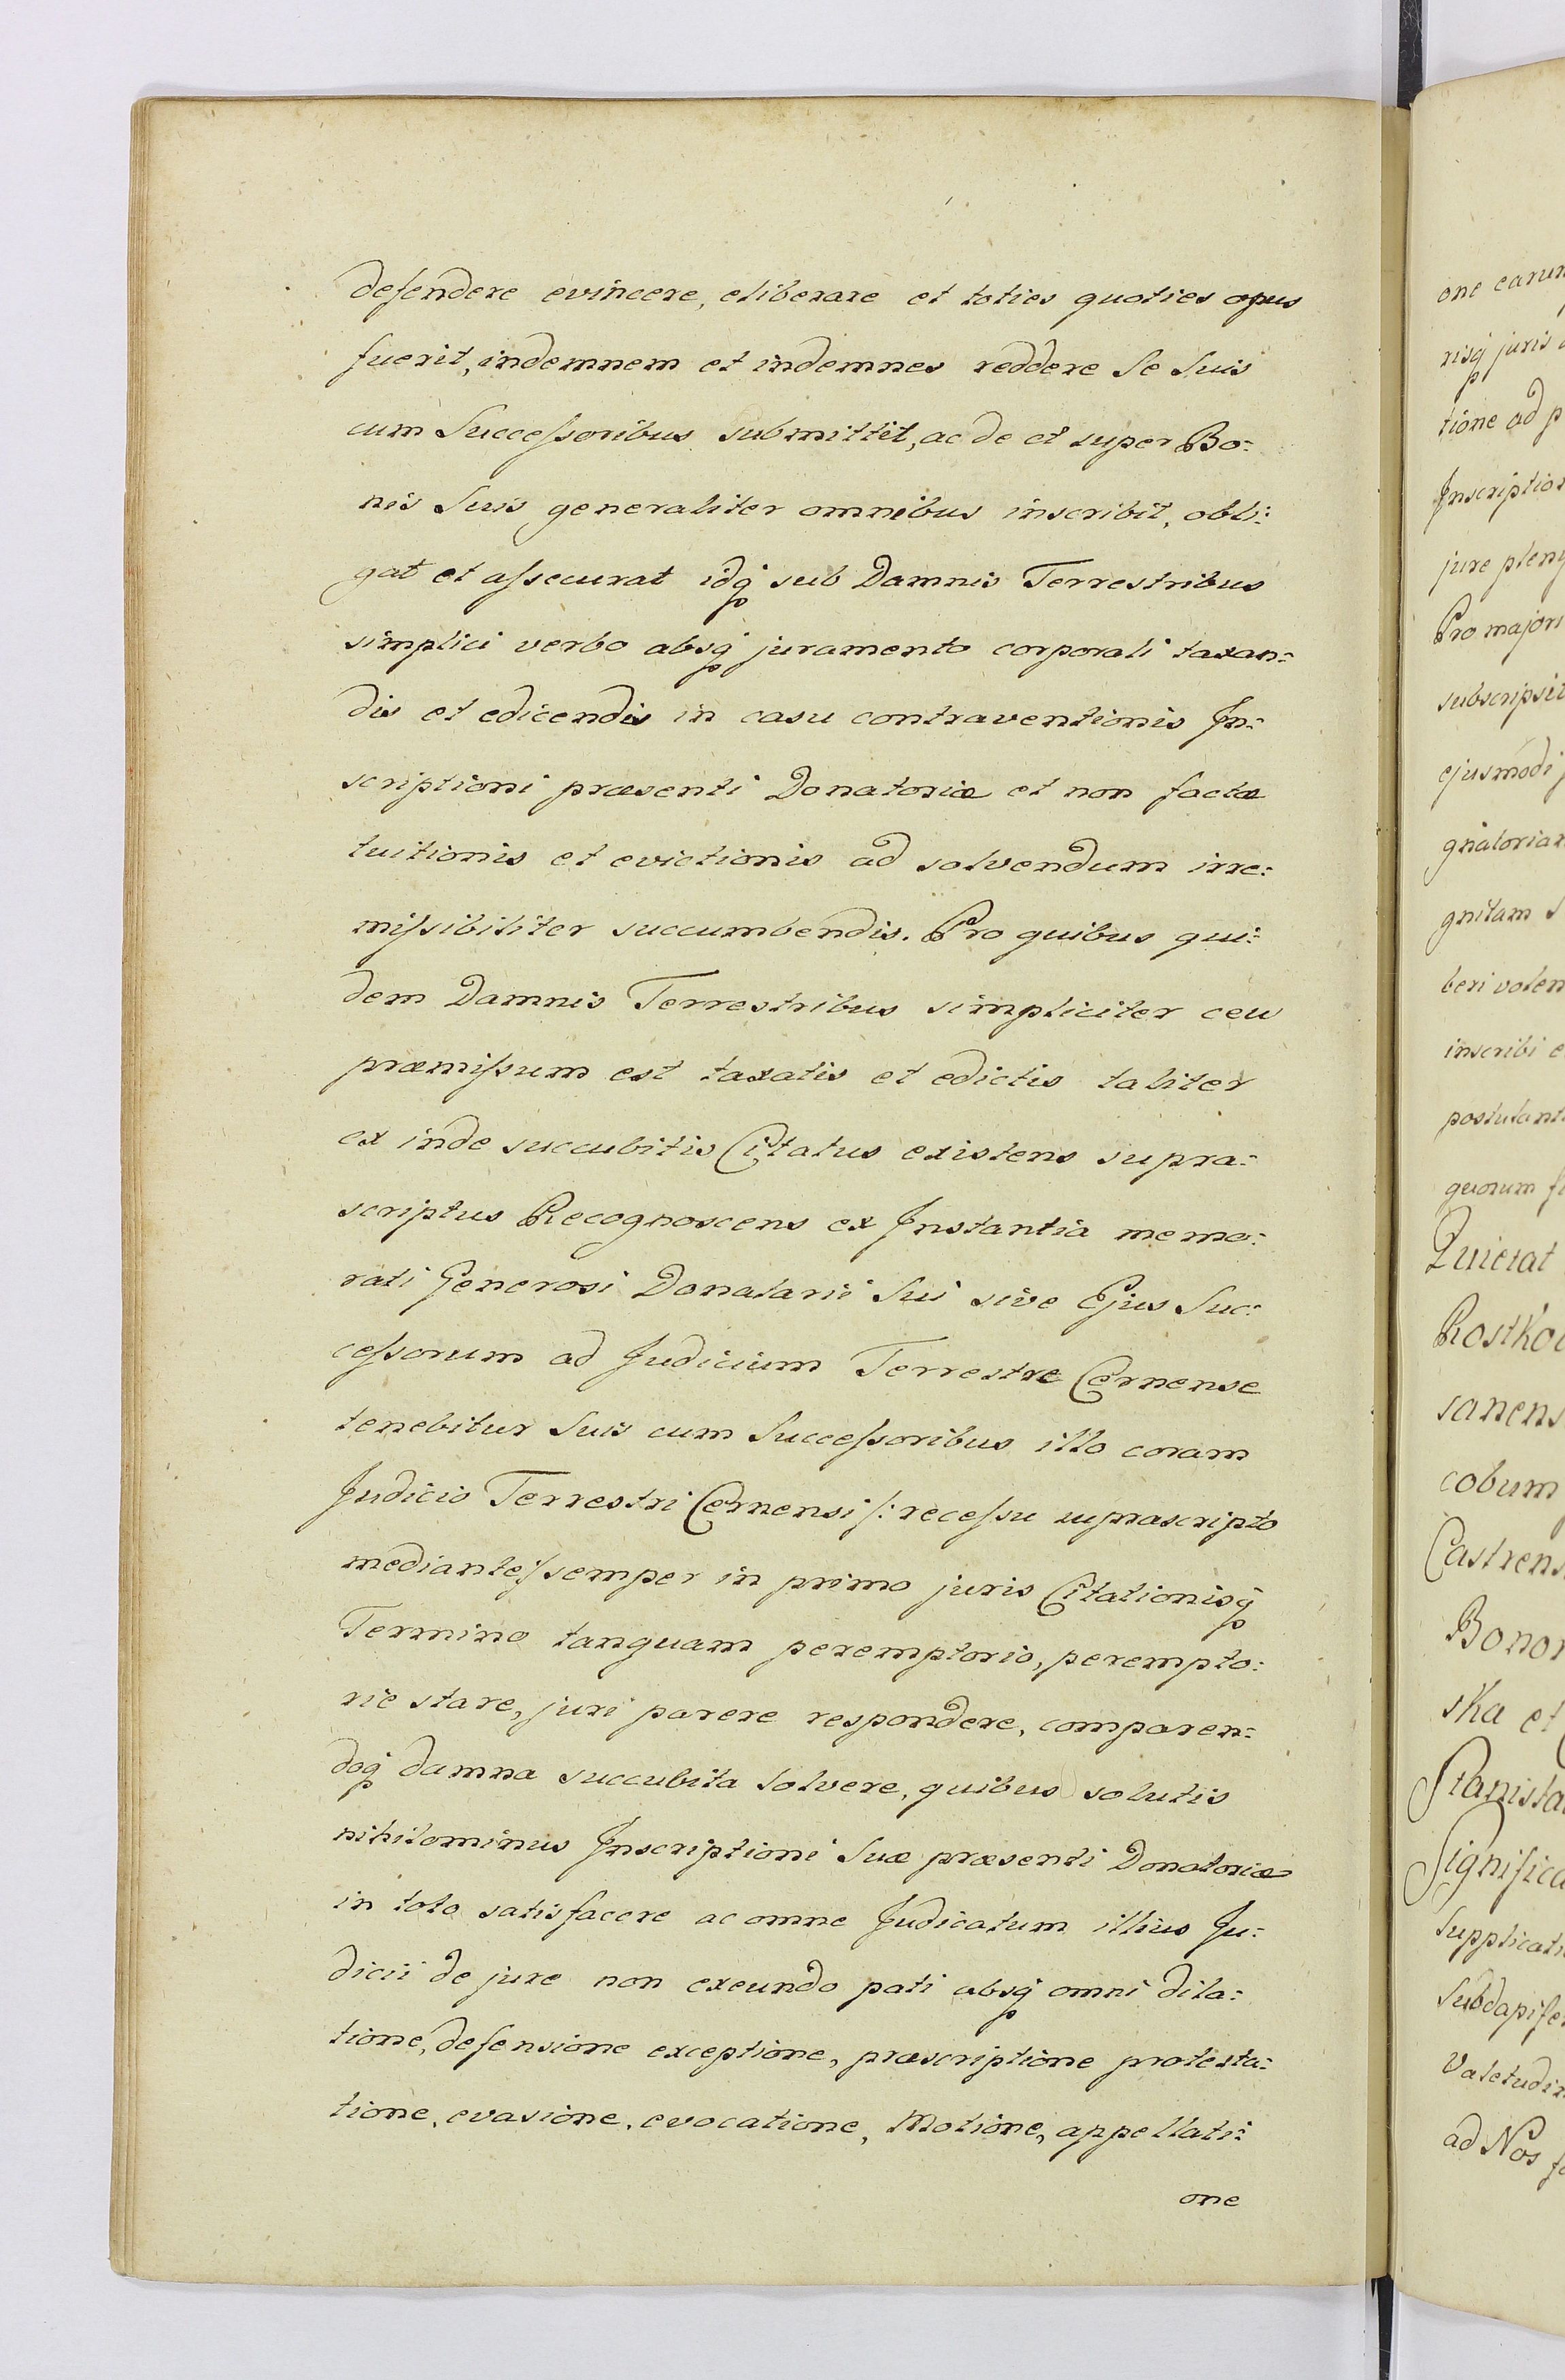 defendere evincere, eliberare et toties quoties opus
fuerit, indemnem et indemnes reddere Se Suis
cum Succeſsoribus submittit, ac de et super Bo:
nis Suis generaliter omnibus inscribit, obli:
gat et aſsecurat idq̨ sub Damnis Terrestribus
simplici verbo absq̨ juramento corporali taxan:
dis et edicendis in casu contraventionis In:
scriptioni præsenti Donatoriæ et non factæ
tuitionis et evictionis ad solvendum irre:
miſsibiliter succumbendis. Pro quibus qui:
dem Damnis Terrestribus simpliciter ceu
præmiſsum est taxatis et edictis taliter
ex inde succubitis Citatus existens supra:
scriptus Recognoscens ex Instantia memo:
rati Generosi Donatarii Sui sive Ejus Suc:
ceſsorum ad Judicium Terrestre Cernense
tenebitur Suis cum Succeſsoribus illo coram
Judicio Terrestri Cernensi /: receſsu suprascripto
mediante :/ semper in primo juris Citationisq̨
Termino tanquam peremptorio, perempto:
rie stare, juri parere respondere, comparen:
doq̨ damna succubita solvere, quibus solutis
nihilominus Inscriptioni Suæ præsenti Donatoriæ
in toto satisfacere ac omne Judicatum illius Ju:
dicii de jure non exeundo pati absq̨ omni dila:
tione, defensione exceptione, præscriptione protesta:
tione, evasione, evocatione, Motione, appellati:
one
one earum
risq̨ juris
tione ad p
Inscription
jure pleny
Pro majori
subscripsit
ejusmodi
gnatoriam
gnitam s
beri volen
inscribi e
postulanti
quorum f
Quietat
Rostkow
sanens
cobum
Castrens
Bonor
ska et
Stanisla
Significa
Supplicati
Subdapife
Valetudin
ad Nos fa